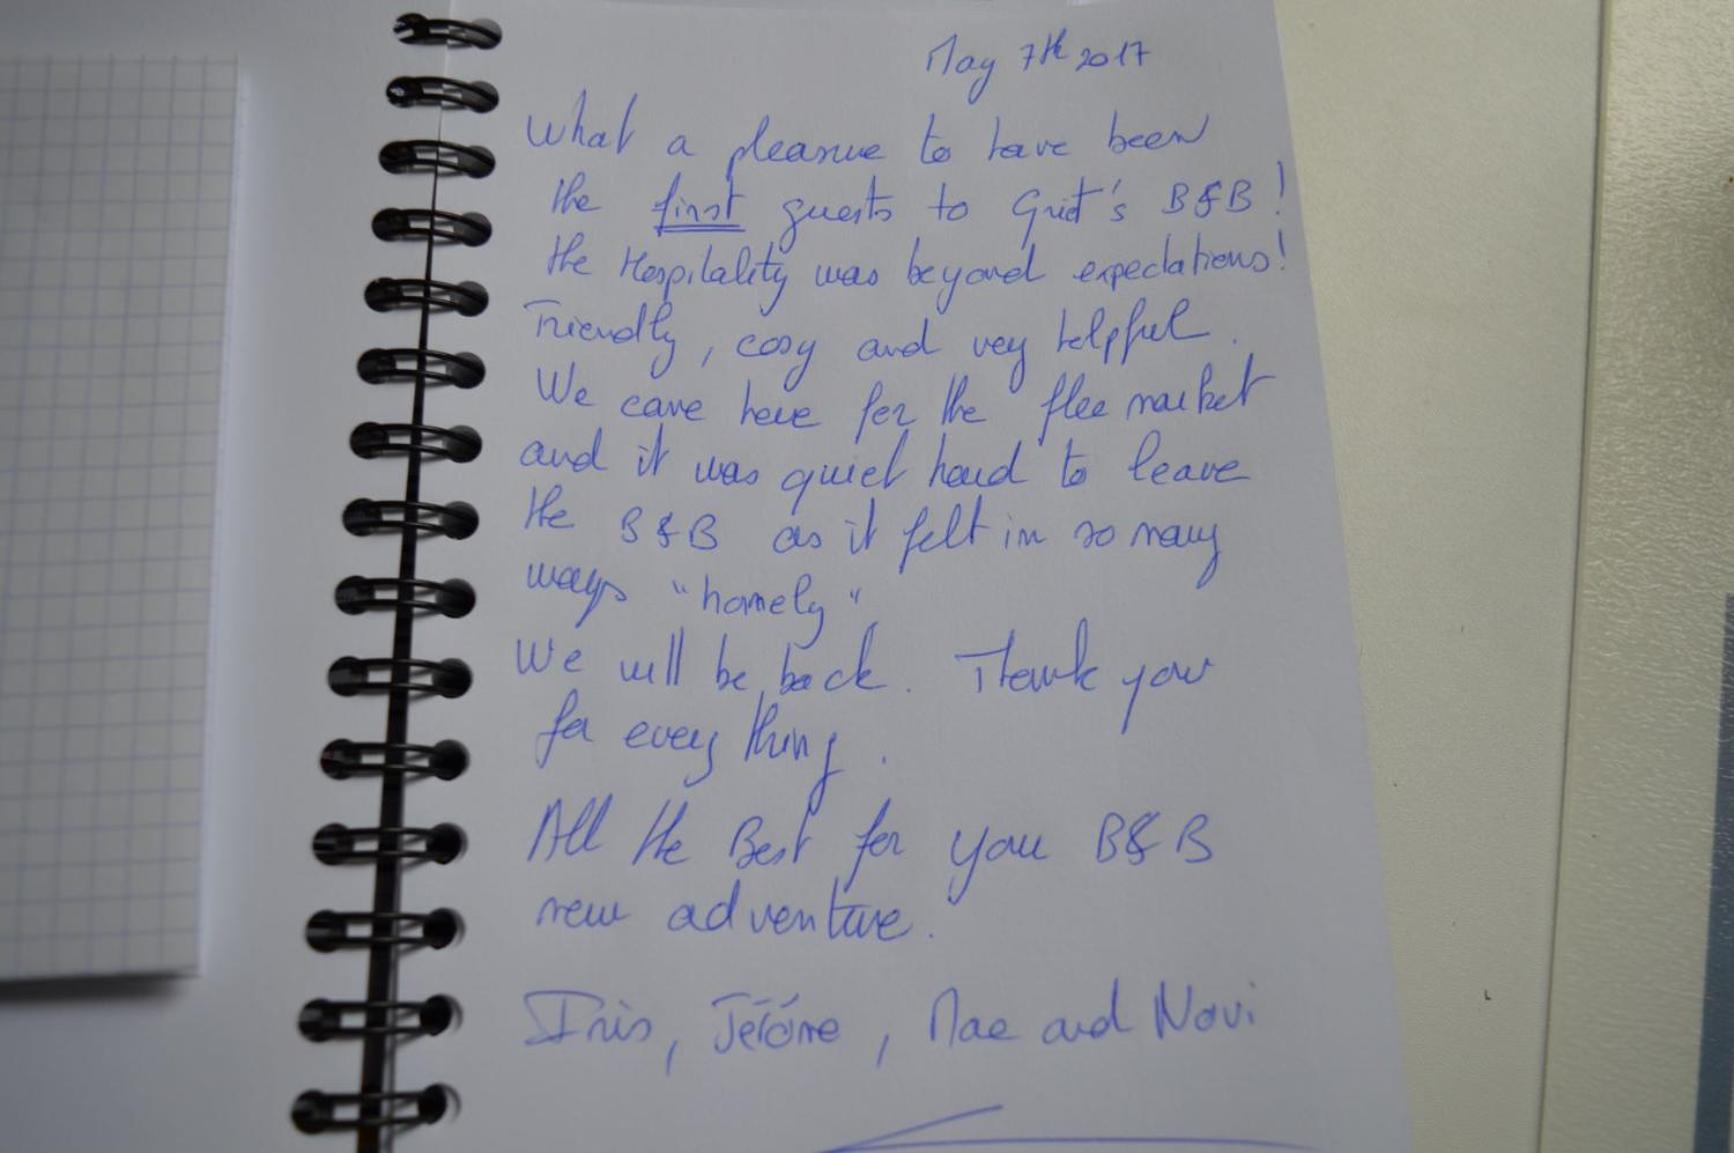 May 7th 2017
What a pleasure to have been
the first guests to Griet's B&B!
the Hospitality was beyond expectations!
Friendly, cosy and very helpful.
We came here for the flee market
and it was quiet hard to leave
the B&B as it felt in so many
ways "homely"
We will be back. Thank you
for every thing.
All the Best for your B&B
new adventure.
Iris, Jérôme, Mae and Novi